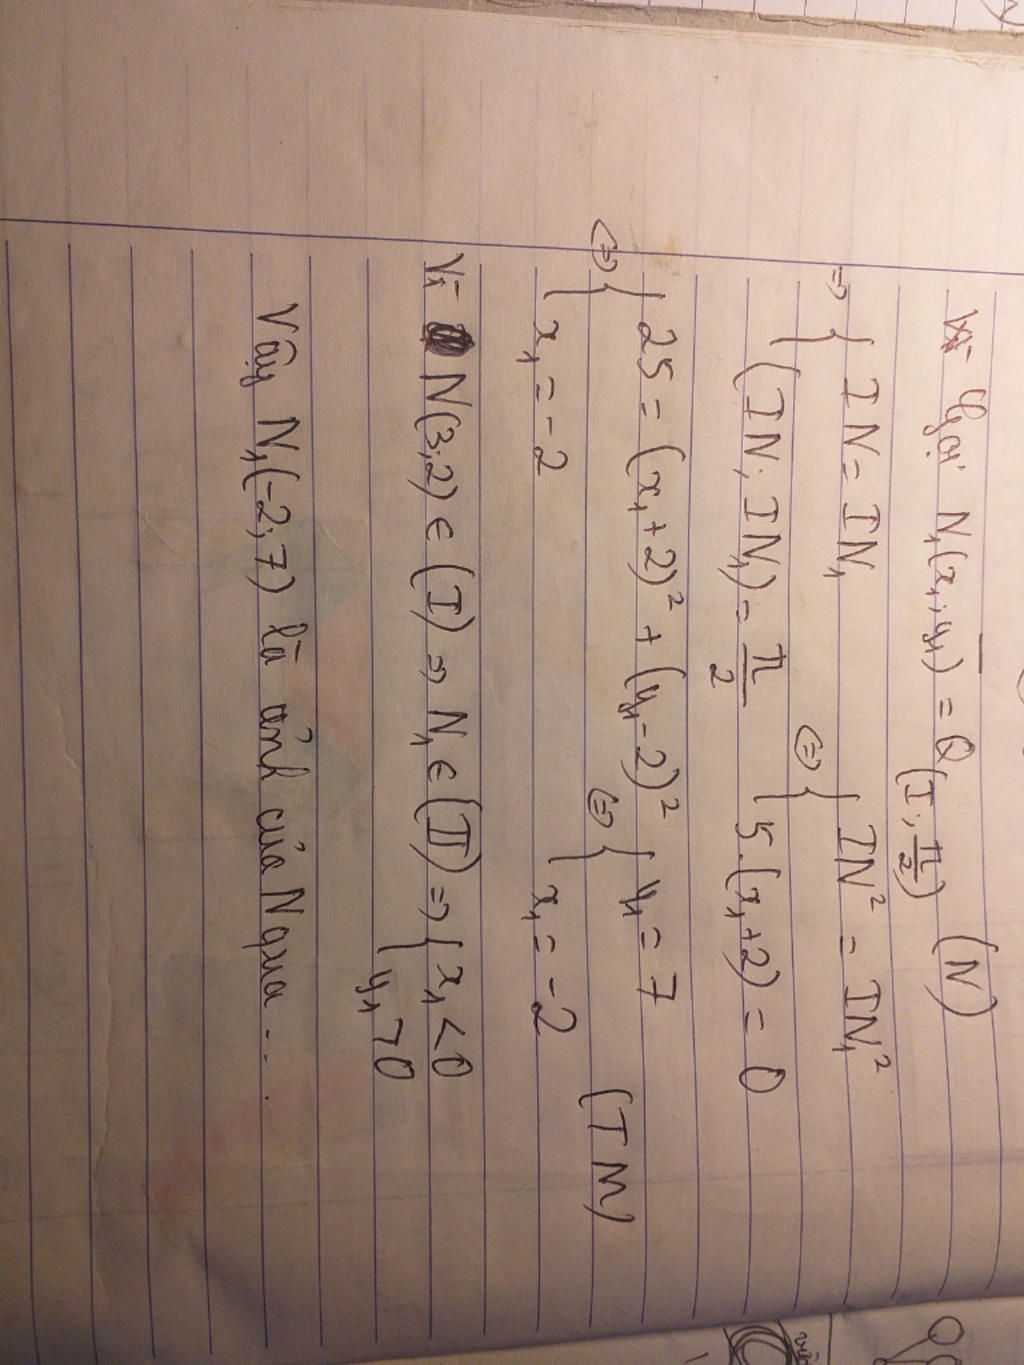 Gọi N₁(x₁; y₁) = Q(I; π/2) (N)
=> { IN = IN₁ <=> { IN² = IN₁²
(IN; IN₁) = π/2 5.(x₁+2) = 0
<=> { 25 = (x₁+2)² + (y₁-2)² <=> { y₁ = 7 (TM)
x₁ = -2 x₁ = -2
Vì N(3;2) ∈ (I) => N₁ ∈ (II) => { x₁ < 0
y₁ > 0
Vậy N₁(-2;7) là ảnh của N qua ...